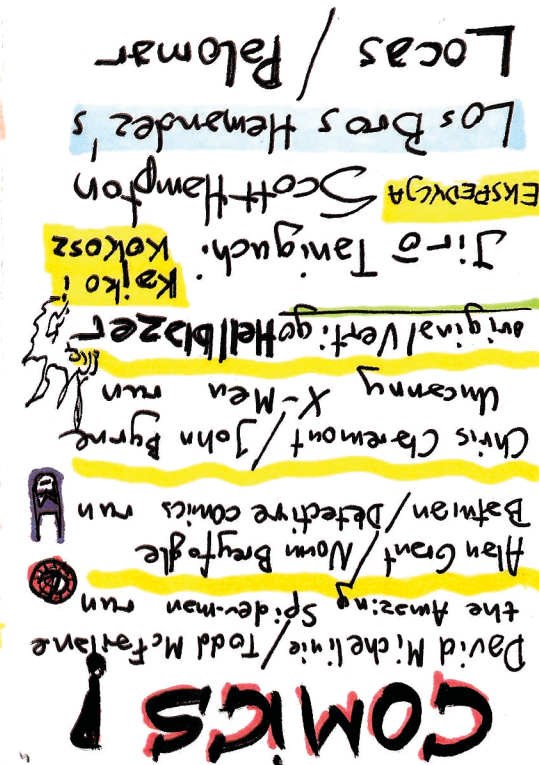 COMICS!
David Michelinie/Todd McFarlane
the Amazing Spider-man run
Alan Grant/Norm Breyfogle
Batman/Detective comics run
Chris Claremont/John Byrne
Uncanny X-Men run
original Vertigo Hellblazer
Jirō Taniguchi
Kajko i
Kokosz
EKSPEDYCJA Scott Hampton
Los Bros Hernandez's
Locas / Palomar